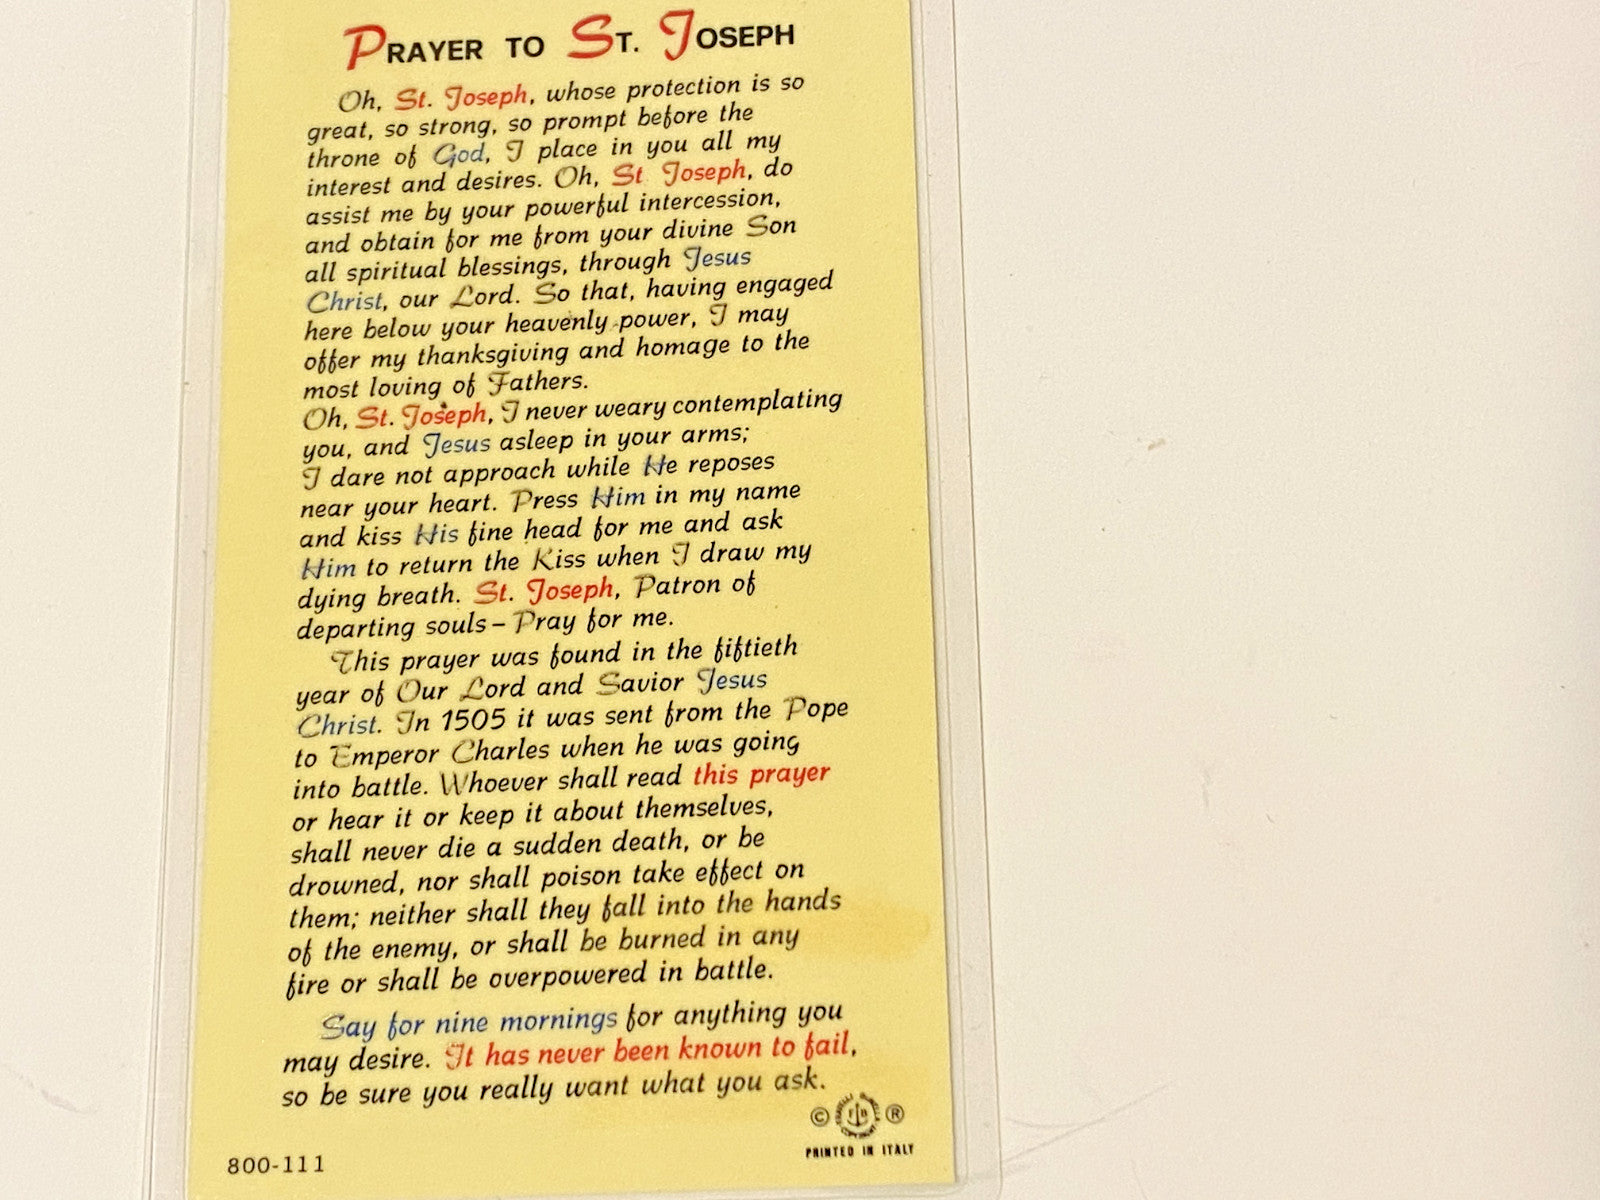 PRAYER TO ST. JOSEPH
Oh, St. Joseph, whose protection is so
great, so strong, so prompt before the
throne of God, I place in you all my
interest and desires. Oh, St Joseph, do
assist me by your powerful intercession,
and obtain for me from your divine Son
all spiritual blessings, through Jesus
Christ, our Lord. So that, having engaged
here below your heavenly power, I may
offer my thanksgiving and homage to the
most loving of Fathers.
Oh, St. Joseph, I never weary contemplating
you, and Jesus asleep in your arms;
I dare not approach while He reposes
near your heart. Press Him in my name
and kiss His fine head for me and ask
Him to return the Kiss when I draw my
dying breath. St. Joseph, Patron of
departing souls – Pray for me.
This prayer was found in the fiftieth
year of Our Lord and Savior Jesus
Christ. In 1505 it was sent from the Pope
to Emperor Charles when he was going
into battle. Whoever shall read this prayer
or hear it or keep it about themselves,
shall never die a sudden death, or be
drowned, nor shall poison take effect on
them; neither shall they fall into the hands
of the enemy, or shall be burned in any
fire or shall be overpowered in battle.
Say for nine mornings for anything you
may desire. It has never been known to fail,
so be sure you really want what you ask.
© ®
PRINTED IN ITALY
800-111